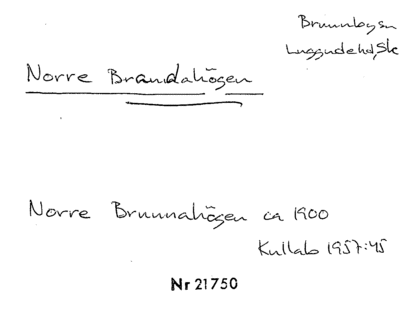 Brunnbysn
Luggudehd, Sk
Norre Brandahögen
Norre Brunnahögen ca 1900
Kullab 1957:45
Nr 21750